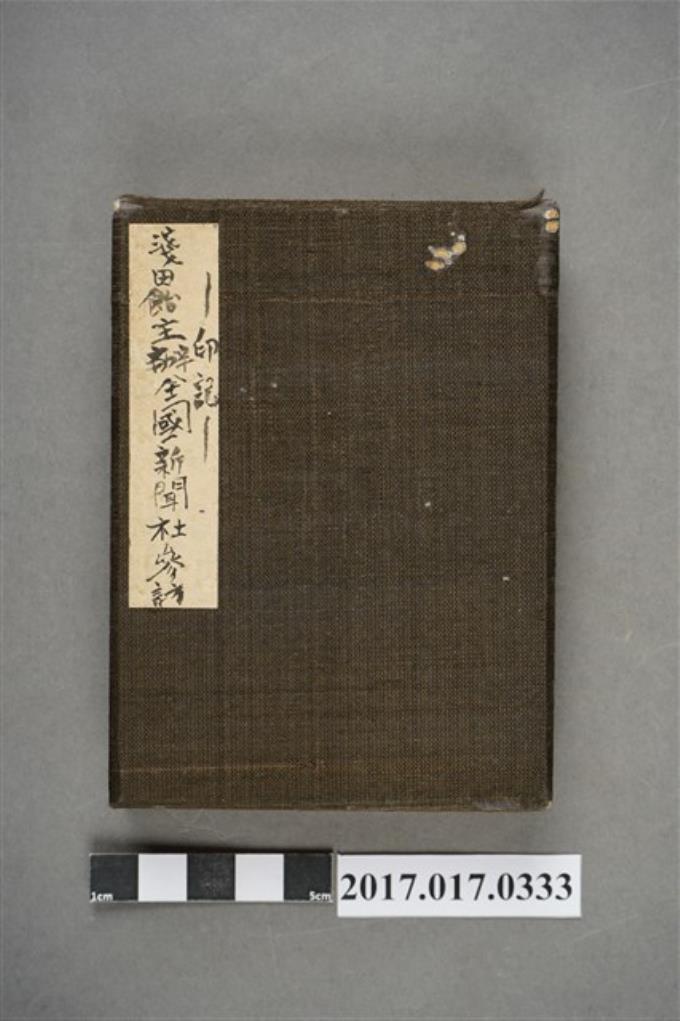 淺田飴主辦全國新聞社參詣
—印記—
1cm
5cm
2017.017.0333